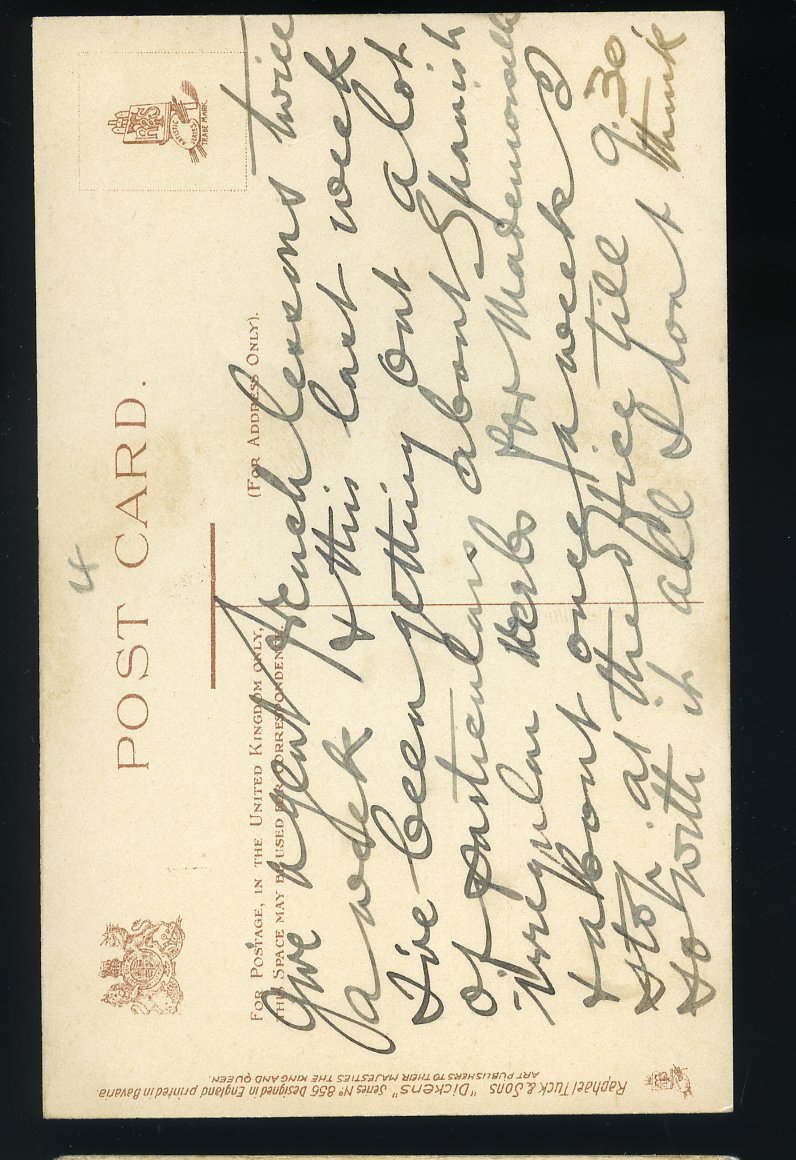 4
POST CARD.
FOR POSTAGE, IN THE UNITED KINGDOM ONLY,
THIS SPACE MAY BE USED FOR CORRESPONDENCE.
(FOR ADDRESS ONLY).
ARTISTIC SERIES
TRADE MARK.
give agent French lessons twice
a week & this last week
I've been getting out a lot
of particulars about Spanish
irregular verbs for Mademoiselle
& about once a week I
stop at the office till 9.30
so with it all I don't think
Raphael Tuck & Sons "Dickens" Series No 856 Designed in England printed in Bavaria
ART PUBLISHERS TO THEIR MAJESTIES THE KING AND QUEEN.